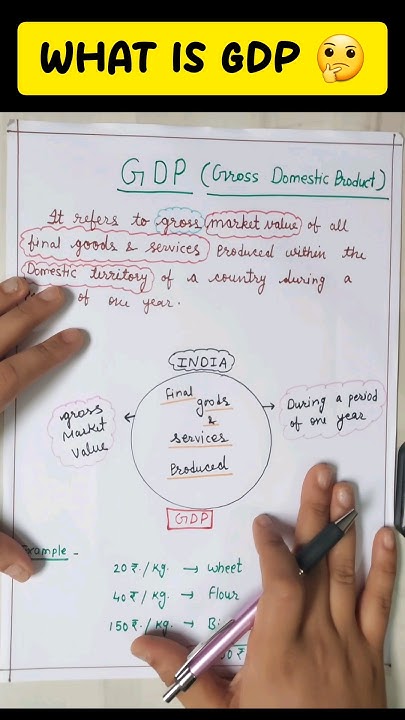 WHAT IS GDP
GDP (Gross Domestic Product)
It refers to gross market value of all
final goods & services Produced within the
Domestic territory of a country during a
of one year.
INDIA
Final
goods
&
services
Produced
gross
Market
Value
During a period
of one year
GDP
Example -
20 ₹./kg. → wheet
40 ₹./kg. → Flour
150 ₹./kg. →